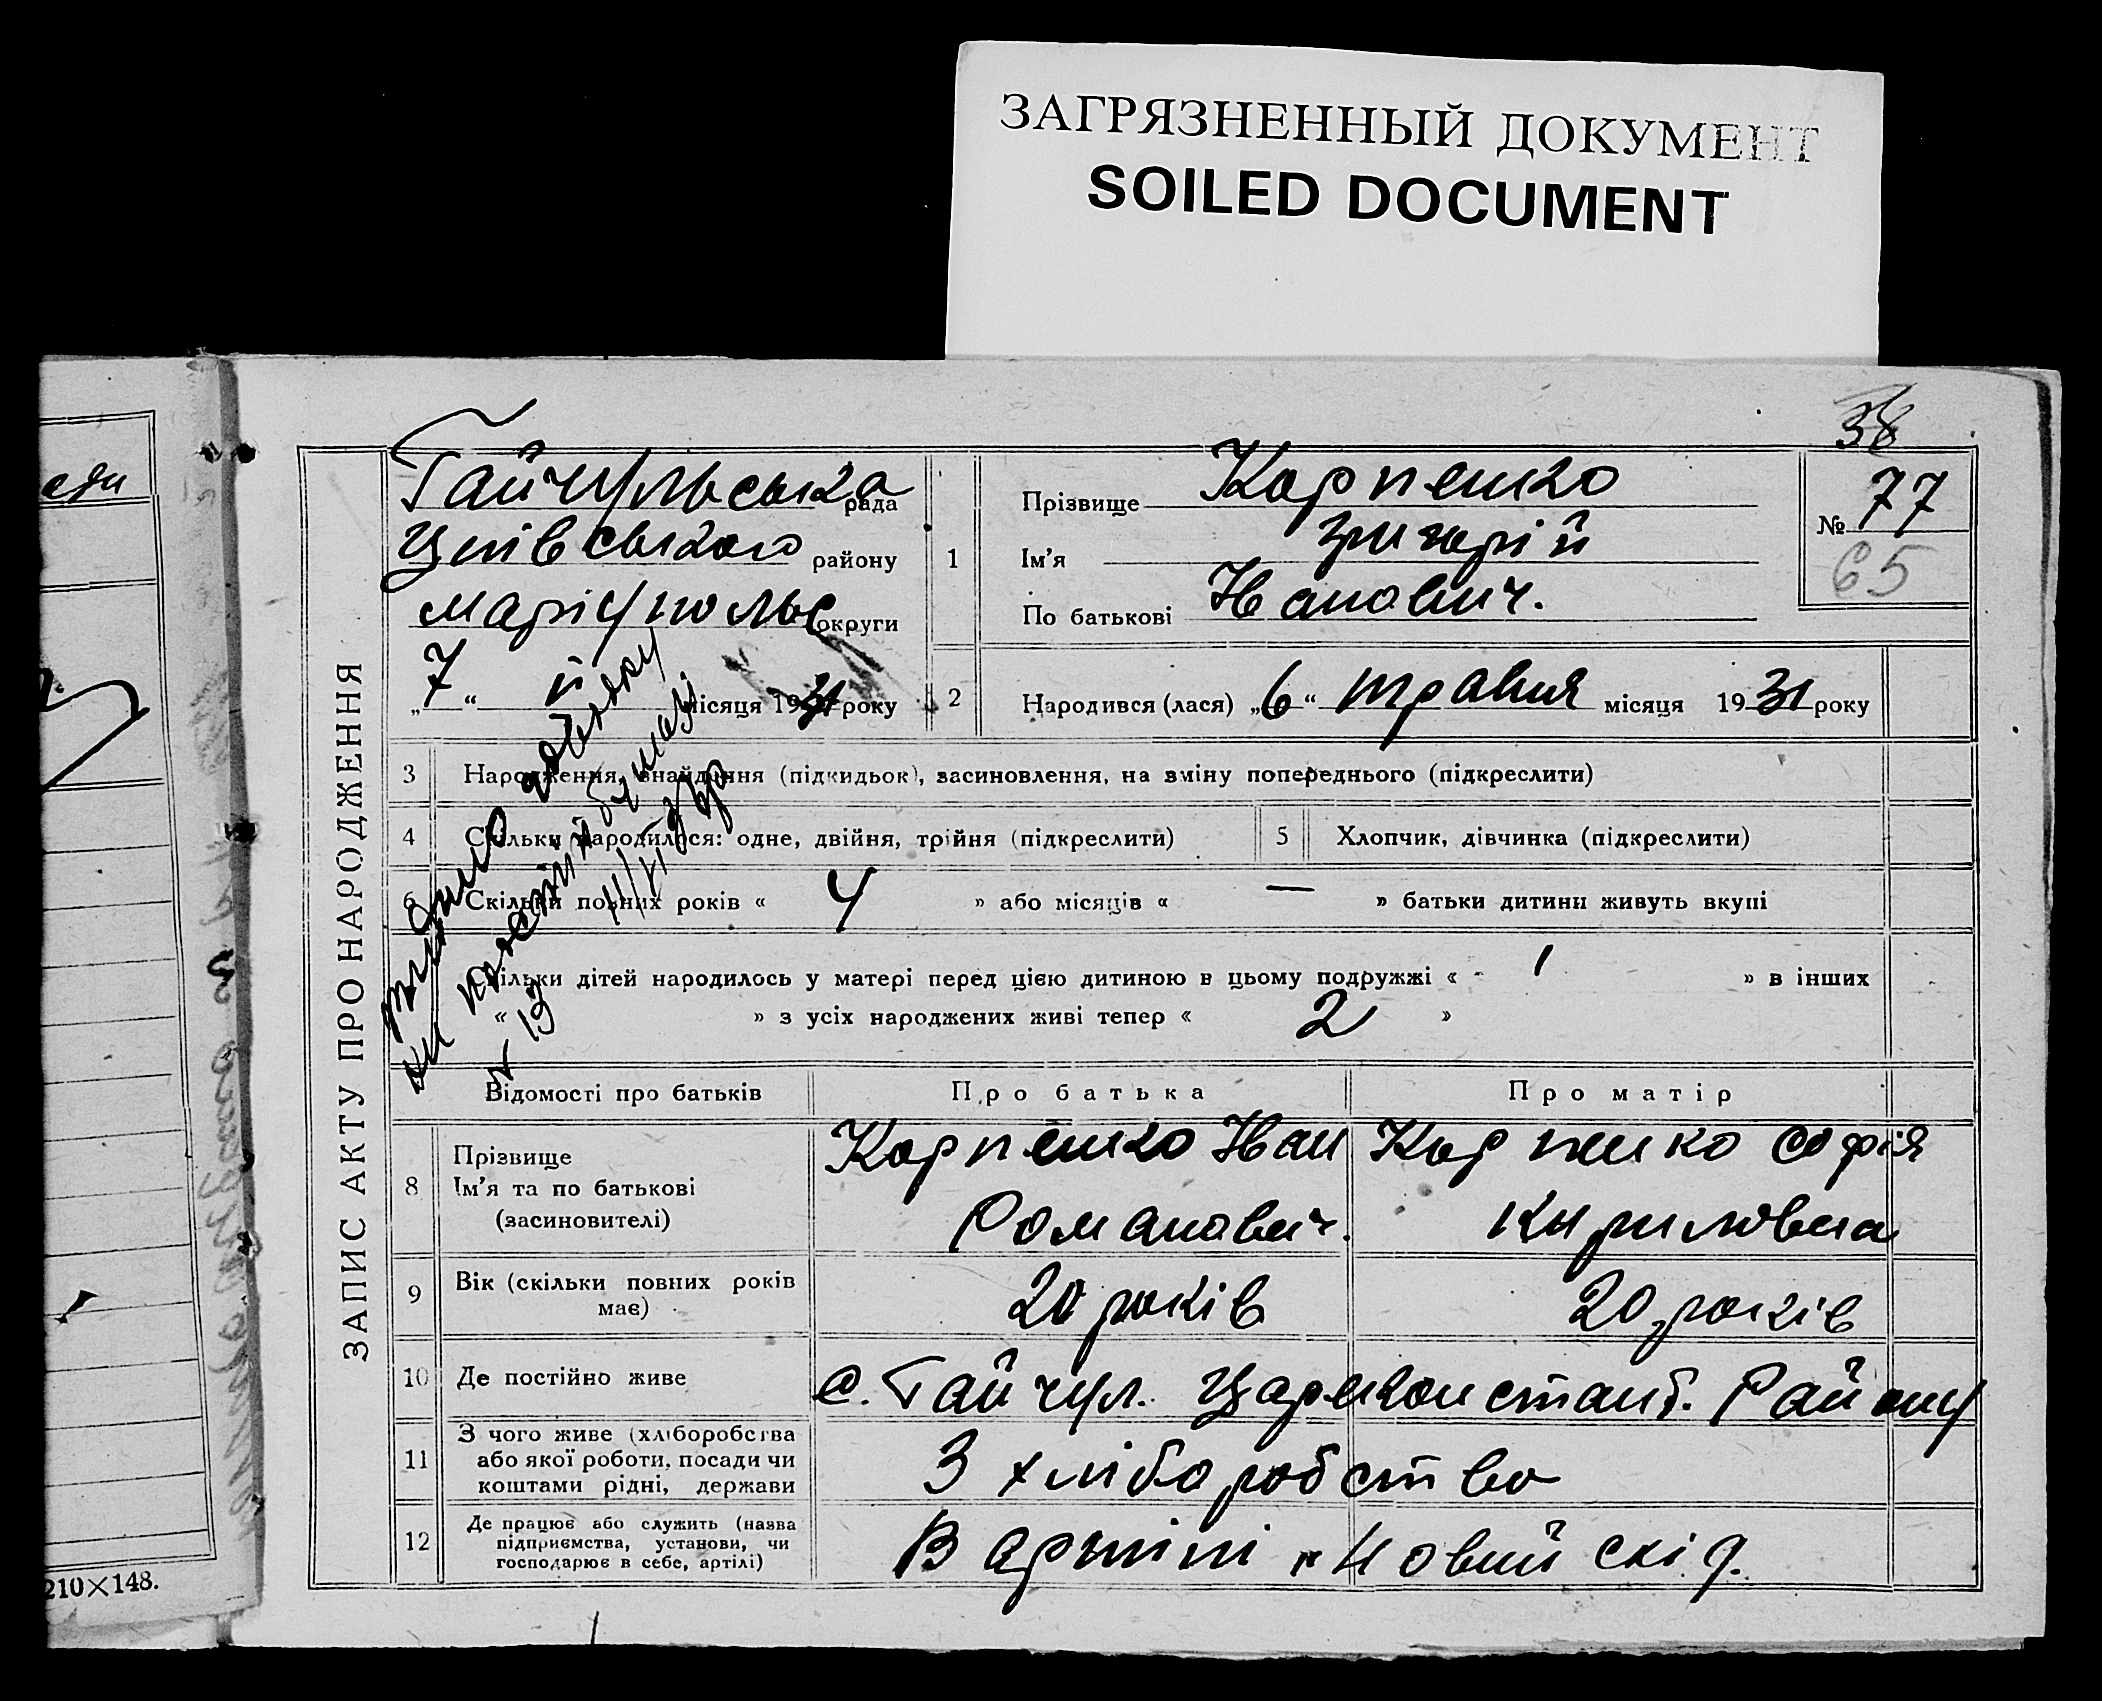 ЗАГРЯЗНЕННЫЙ ДОКУМЕНТ
SOILED DOCUMENT
38
ЗАПИС АКТУ ПРО НАРОДЖЕННЯ
Гайчульська рада
району
Маріупольс округи
„7“ місяця 1931 року
1
Прізвище Карпенко
Ім'я Григорій
По батькові Іванович.
№ 77
65
2 Народився (лася) „6“ травня місяця 1931 року
3 Народження, знайдіння (підкидьок), засиновлення, на зміну попереднього (підкреслити)
4 Скільки народилося: одне, двійня, трійня (підкреслити) 5 Хлопчик, дівчинка (підкреслити)
6 Скільки повних років « 4 » або місяців « — » батьки дитини живуть вкупі
Скільки дітей народилось у матері перед цією дитиною в цьому подружжі « 1 » в інших
« » з усіх народжених живі тепер « 2 »
№ 13
Відомості про батьків Про батька Про матір
8
Прізвище
Ім'я та по батькові
(засиновителі)
Карпенко Іван
Романович.
Карпенко Софія
Кириловна
9 Вік (скільки повних років
має)
20 років 20 років
10 Де постійно живе с. Гайчул. Царекконстант. Району
11 З чого живе (хліборобства
або якої роботи, посади чи
коштами рідні, держави
З хліборобство
12 Де працює або служить (назва
підприємства, установи, чи
господарює в себе, артілі)
В артілі „Новий схід.
210×148.